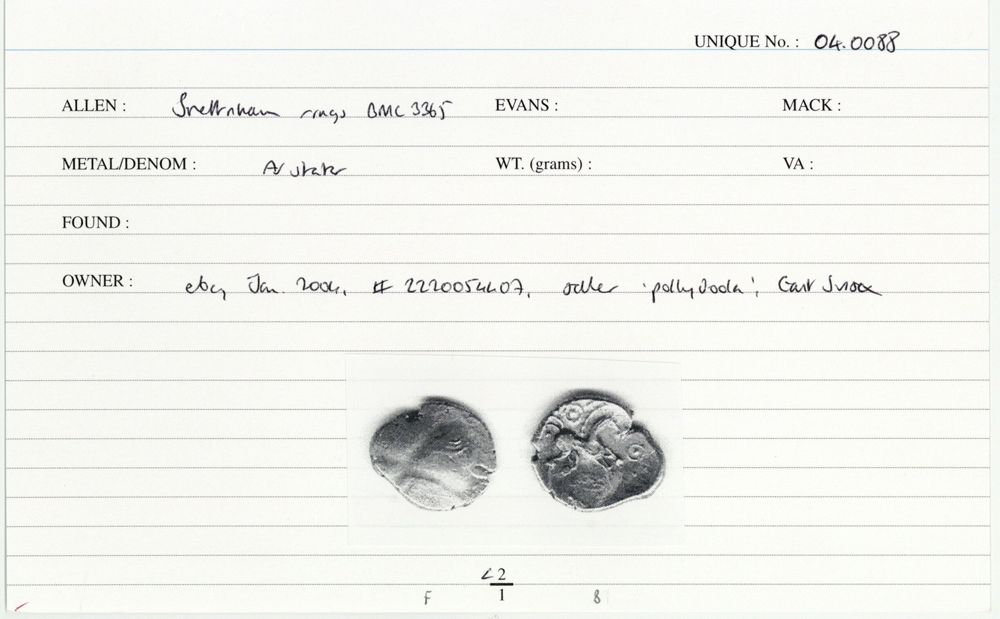 UNIQUE No. : 04.0088
ALLEN : Snettisham rings BMC 3365 EVANS : MACK :
METAL/DENOM : AV stater WT. (grams) : VA :
FOUND :
OWNER : ebay Jan. 2004, # 2220054407, seller 'pollydoda', East Sussex
< 2
1
F